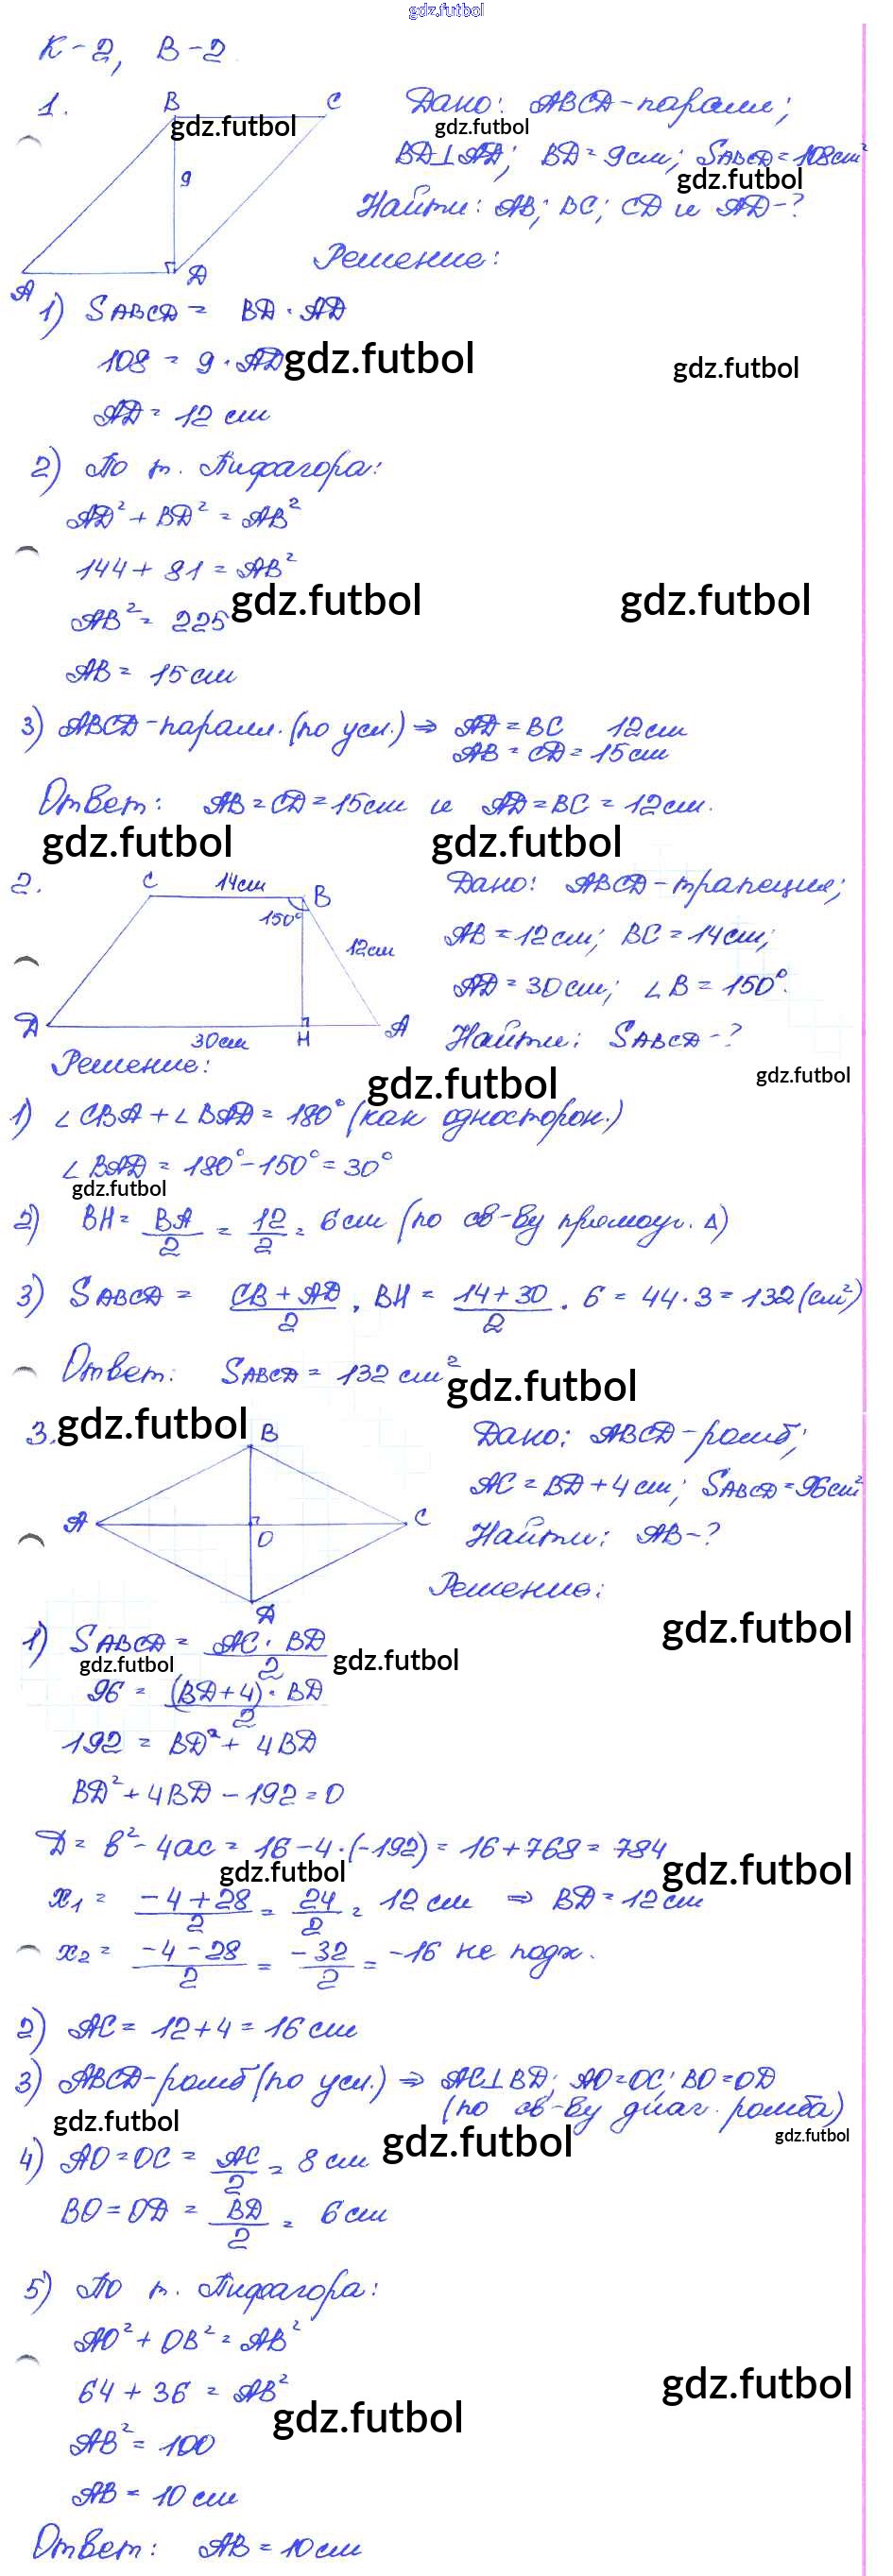 gdz.futbol
К-2, В-2
1.
B
C
9
A
D
gdz.futbol
Дано: ABCD-паралл;
gdz.futbol
BD⊥AD; BD = 9см; SABCD = 108см²
gdz.futbol
Найти: AB; BC; CD и AD-?
Решение:
1) SABCD = BD · AD
108 = 9 · AD
gdz.futbol
gdz.futbol
AD = 12 см
2) По т. Пифагора:
AD² + BD² = AB²
144 + 81 = AB²
AB² = 225
gdz.futbol
gdz.futbol
AB = 15 см
3) ABCD-паралл. (по усл.) ⇒ AD = BC 12см
AB = CD = 15см
Ответ: AB = CD = 15см и AD = BC = 12см.
gdz.futbol
gdz.futbol
2.
C
14см
B
150°
12см
D
30см
H
A
Дано: ABCD-трапеция;
AB = 12см; BC = 14см;
AD = 30см; ∠B = 150°.
Найти: SABCD-?
Решение:
gdz.futbol
gdz.futbol
1) ∠CBA + ∠BAD = 180° (как односторон.)
∠BAD = 180° - 150° = 30°
gdz.futbol
2) BH = BA/2 = 12/2 = 6см (по св-ву прямоуг. Δ)
3) SABCD = (CB + AD)/2 · BH = (14 + 30)/2 · 6 = 44 · 3 = 132 (см²)
Ответ: SABCD = 132 см²
gdz.futbol
3.
gdz.futbol
B
A
C
O
D
Дано: ABCD-ромб;
AC = BD + 4 см; SABCD = 96см²
Найти: AB-?
Решение:
gdz.futbol
1) SABCD = AC · BD/2
gdz.futbol
gdz.futbol
96 = (BD + 4) · BD/2
192 = BD² + 4BD
BD² + 4BD - 192 = 0
D = b² - 4ac = 16 - 4 · (-192) = 16 + 768 = 784
gdz.futbol
gdz.futbol
x₁ = -4 + 28/2 = 24/2 = 12 см ⇒ BD = 12 см
x₂ = -4 - 28/2 = -32/2 = -16 не подх.
2) AC = 12 + 4 = 16 см
3) ABCD-ромб (по усл.) ⇒ AC⊥BD; AO = OC; BO = OD
(по св-ву диаг. ромба)
gdz.futbol
gdz.futbol
gdz.futbol
4) AO = OC = AC/2 = 8 см
BO = OD = BD/2 = 6 см
5) По т. Пифагора:
AO² + OB² = AB²
64 + 36 = AB²
gdz.futbol
gdz.futbol
AB² = 100
AB = 10 см
Ответ: AB = 10 см